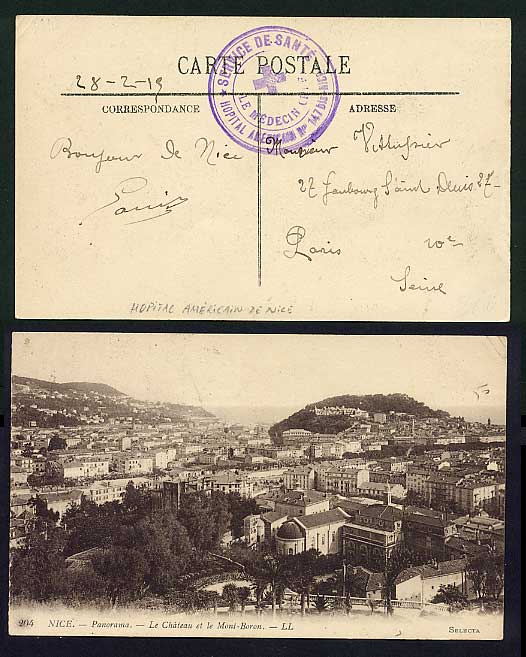 CARTE POSTALE
SERVICE DE SANTÉ
LE MÉDECIN
HOPITAL AMÉRICAIN No 147 BIS
28-2-19
CORRESPONDANCE
ADRESSE
Bonjour de Nice
Monsieur
27 Faubourg Saint Denis 27-
Paris 10e
Seine
HOPITAL AMÉRICAIN DE NICE
204 NICE. - Panorama. - Le Château et le Mont-Boron. - LL
SELECTA